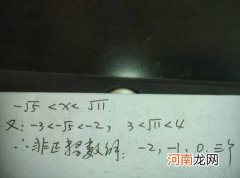 -√5 < x < √11.
又: -3<-√5<-2, 3<√11<4
∴非正整数解: -2, -1, 0. 三个